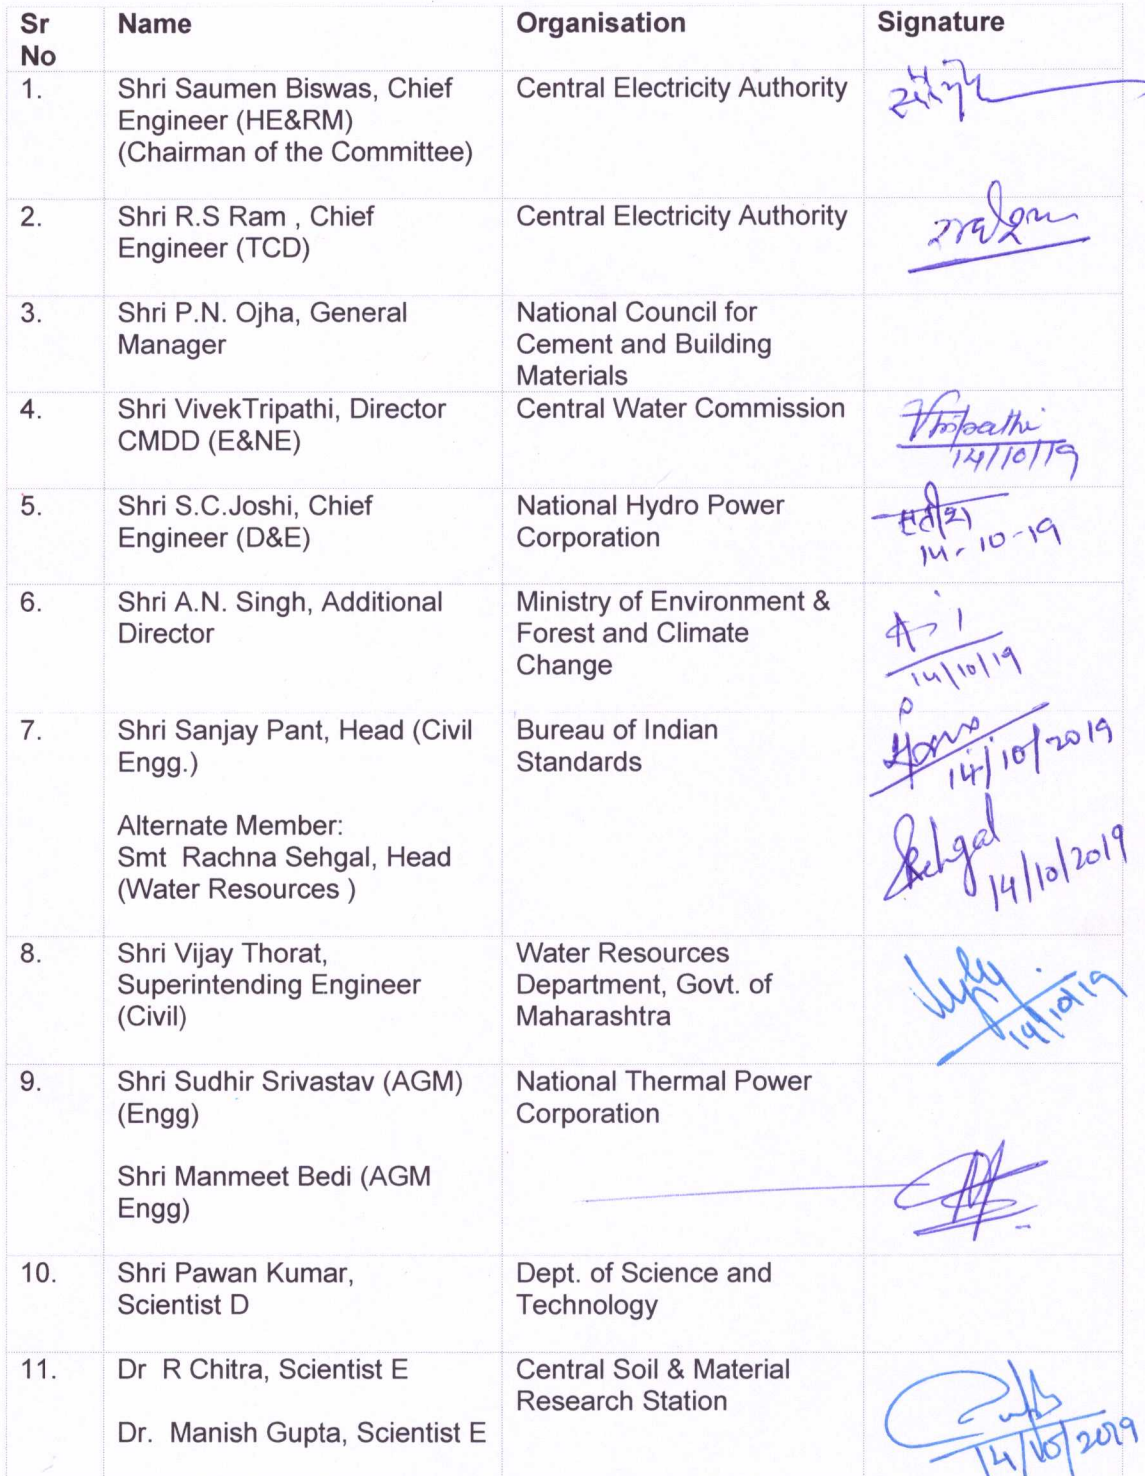 Sr No
Name
Organisation
Signature
1.
Shri Saumen Biswas, Chief
Engineer (HE&RM)
(Chairman of the Committee)
Central Electricity Authority
2.
Shri R.S Ram , Chief
Engineer (TCD)
Central Electricity Authority
3.
Shri P.N. Ojha, General
Manager
National Council for
Cement and Building
Materials
4.
Shri VivekTripathi, Director
CMDD (E&NE)
Central Water Commission
VTripathi
14/10/19
5.
Shri S.C.Joshi, Chief
Engineer (D&E)
National Hydro Power
Corporation
सतीश
14-10-19
6.
Shri A.N. Singh, Additional
Director
Ministry of Environment &
Forest and Climate
Change
14/10/19
7.
Shri Sanjay Pant, Head (Civil
Engg.)
Bureau of Indian
Standards
14/10/2019
Alternate Member:
Smt Rachna Sehgal, Head
(Water Resources )
Sehgal
14/10/2019
8.
Shri Vijay Thorat,
Superintending Engineer
(Civil)
Water Resources
Department, Govt. of
Maharashtra
14/10/19
9.
Shri Sudhir Srivastav (AGM)
(Engg)
National Thermal Power
Corporation
Shri Manmeet Bedi (AGM
Engg)
10.
Shri Pawan Kumar,
Scientist D
Dept. of Science and
Technology
11.
Dr R Chitra, Scientist E
Central Soil & Material
Research Station
Dr. Manish Gupta, Scientist E
14/10/2019